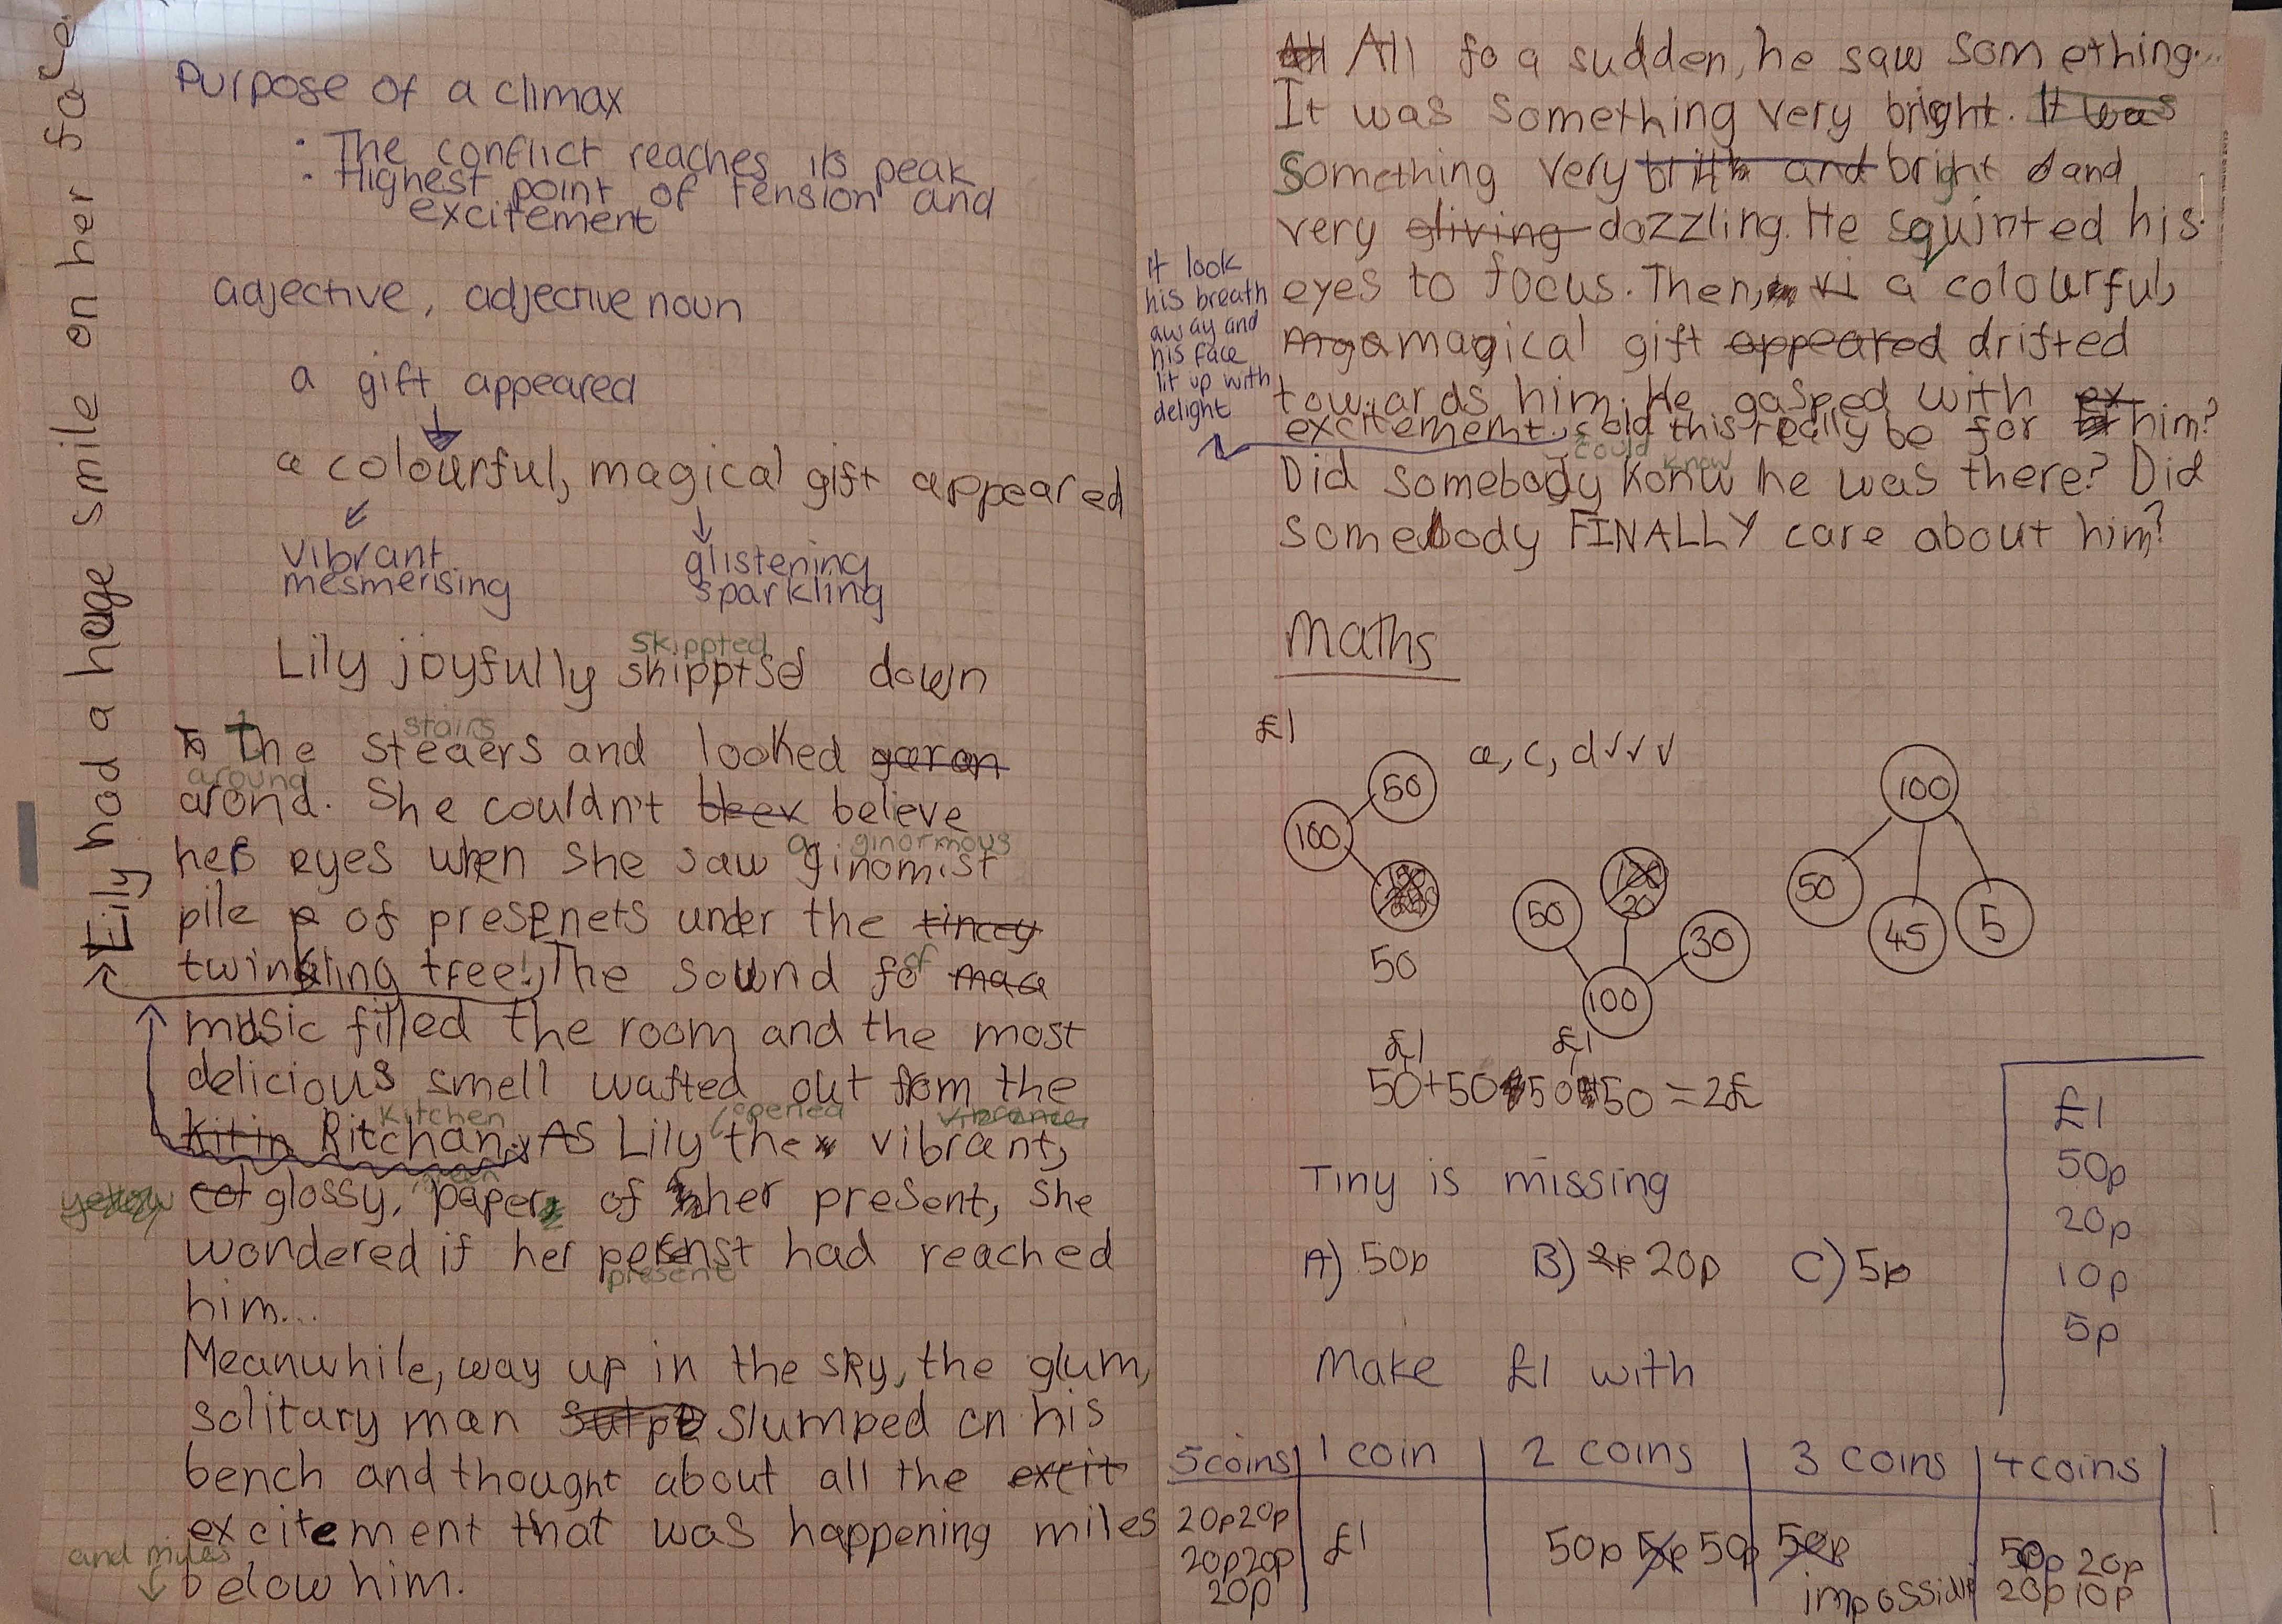 Purpose of a climax
· The conflict reaches its peak
· Highest point of tension and
excitement
adjective, adjective noun
a gift appeared
a colourful, magical gift appeared
vibrant
mesmerising
glistening
sparkling
Skippted
Lily joyfully skipptsd down
stairs
The steaers and looked garon
around
arond. She couldn't beex believe
a ginormous
her eyes when she saw ginomist
pile of presenets under the tincey
twinkling tree! The sound fo of maa
music filled the room and the most
delicious smell wafted out from the
Kitchen opened vibrance
kitin Ritchan. As Lily the vibrant,
green
yellow cot glossy, paper of her present, she
wondered if her persenst had reached
present
him...
Meanwhile, way up in the sky, the glum,
solitary man Sulpe slumped on his
bench and thought about all the excit
excitement that was happening miles
and miles
below him.
Lily had a huge smile on her face
All All fo a sudden, he saw something...
It was something very bright. It was
Something very brith and bright and
very gliving dazzling. He squinted his
eyes to focus. Then, vi a colourful,
mga magical gift appeared drifted
towards him. He gasped with ex
excitement. cold this really be for him?
could know
Did somebody Konw he was there? Did
somebody FINALLY care about him?
it look
his breath
away and
his face
lit up with
delight
Maths
£1
a, c, d ✓✓✓
50
100
50
50
120
20
30
100
100
50
45
5
£1 £1
50+50 50 50 = 2£
Tiny is missing
A) 50p B) 2p 20p C) 5p
£1
50p
20p
10p
5p
Make £1 with
5 coins 1 coin 2 coins 3 coins 4 coins
20p 20p
20p 20p
20p
£1
50p 5p 50p
50p
impossible
50p 20p
20p 10p